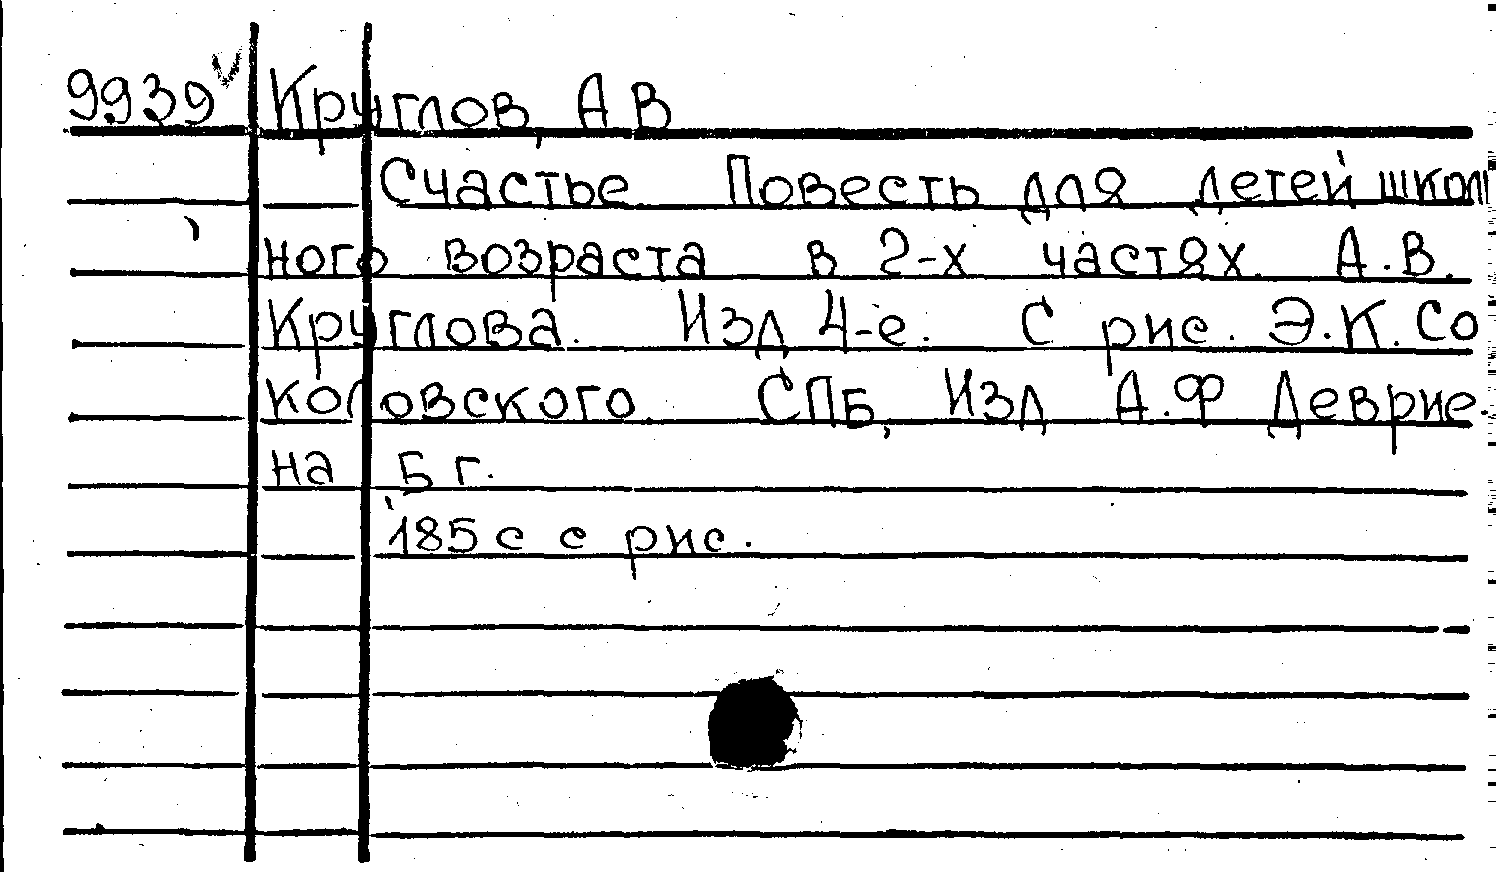 9939 v Круглов, А В
Счастье Повесть для детей школь
ного возраста в 2-х частях. А.В.
Круглова. Изд 4-е. С рис. Э.К. Со
коловского. СПБ, Изд А.Ф Деврие-
на Б г.
185 с с рис.